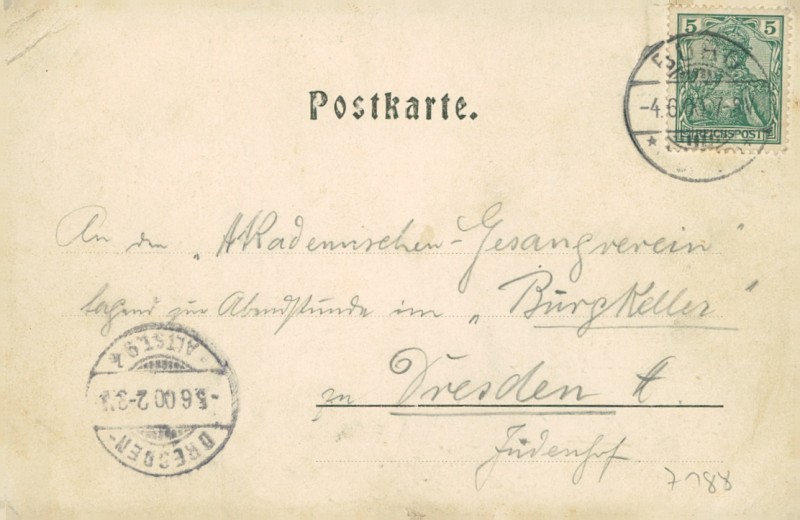 5 5
REICHSPOST
-4.6.00. 7-8
Postkarte.
An den „Akademischen-Gesangverein"
tagend zur Abendstunde im „Burgkeller"
zu Dresden A.
Judenhof
7188
DRESDEN-
-5.6.00 2-3N
ALTST.9 k